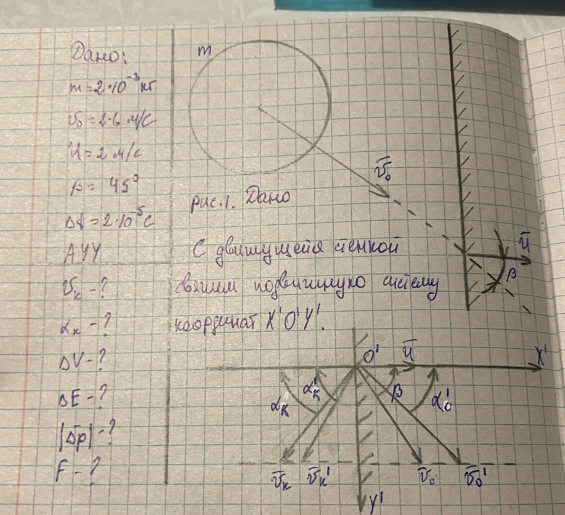 Дано:
m = 2·10⁻³ кг
v₀ = 2.6 м/с
U = 2 м/с
β = 45°
Δt = 2·10⁻⁵ с
АУУ
v̄ₖ - ?
αₖ - ?
ΔV - ?
ΔE - ?
|Δp̄| - ?
F - ?
m
v̄₀
рис.1. Дано
ū
β
С движущейся стенкой
свяжем подвижную систему
координат X'O'Y'.
O'
ū
X'
αₖ
α'ₖ
β
α'₀
v̄ₖ
v̄ₖ'
v̄₀
v̄₀'
Y'